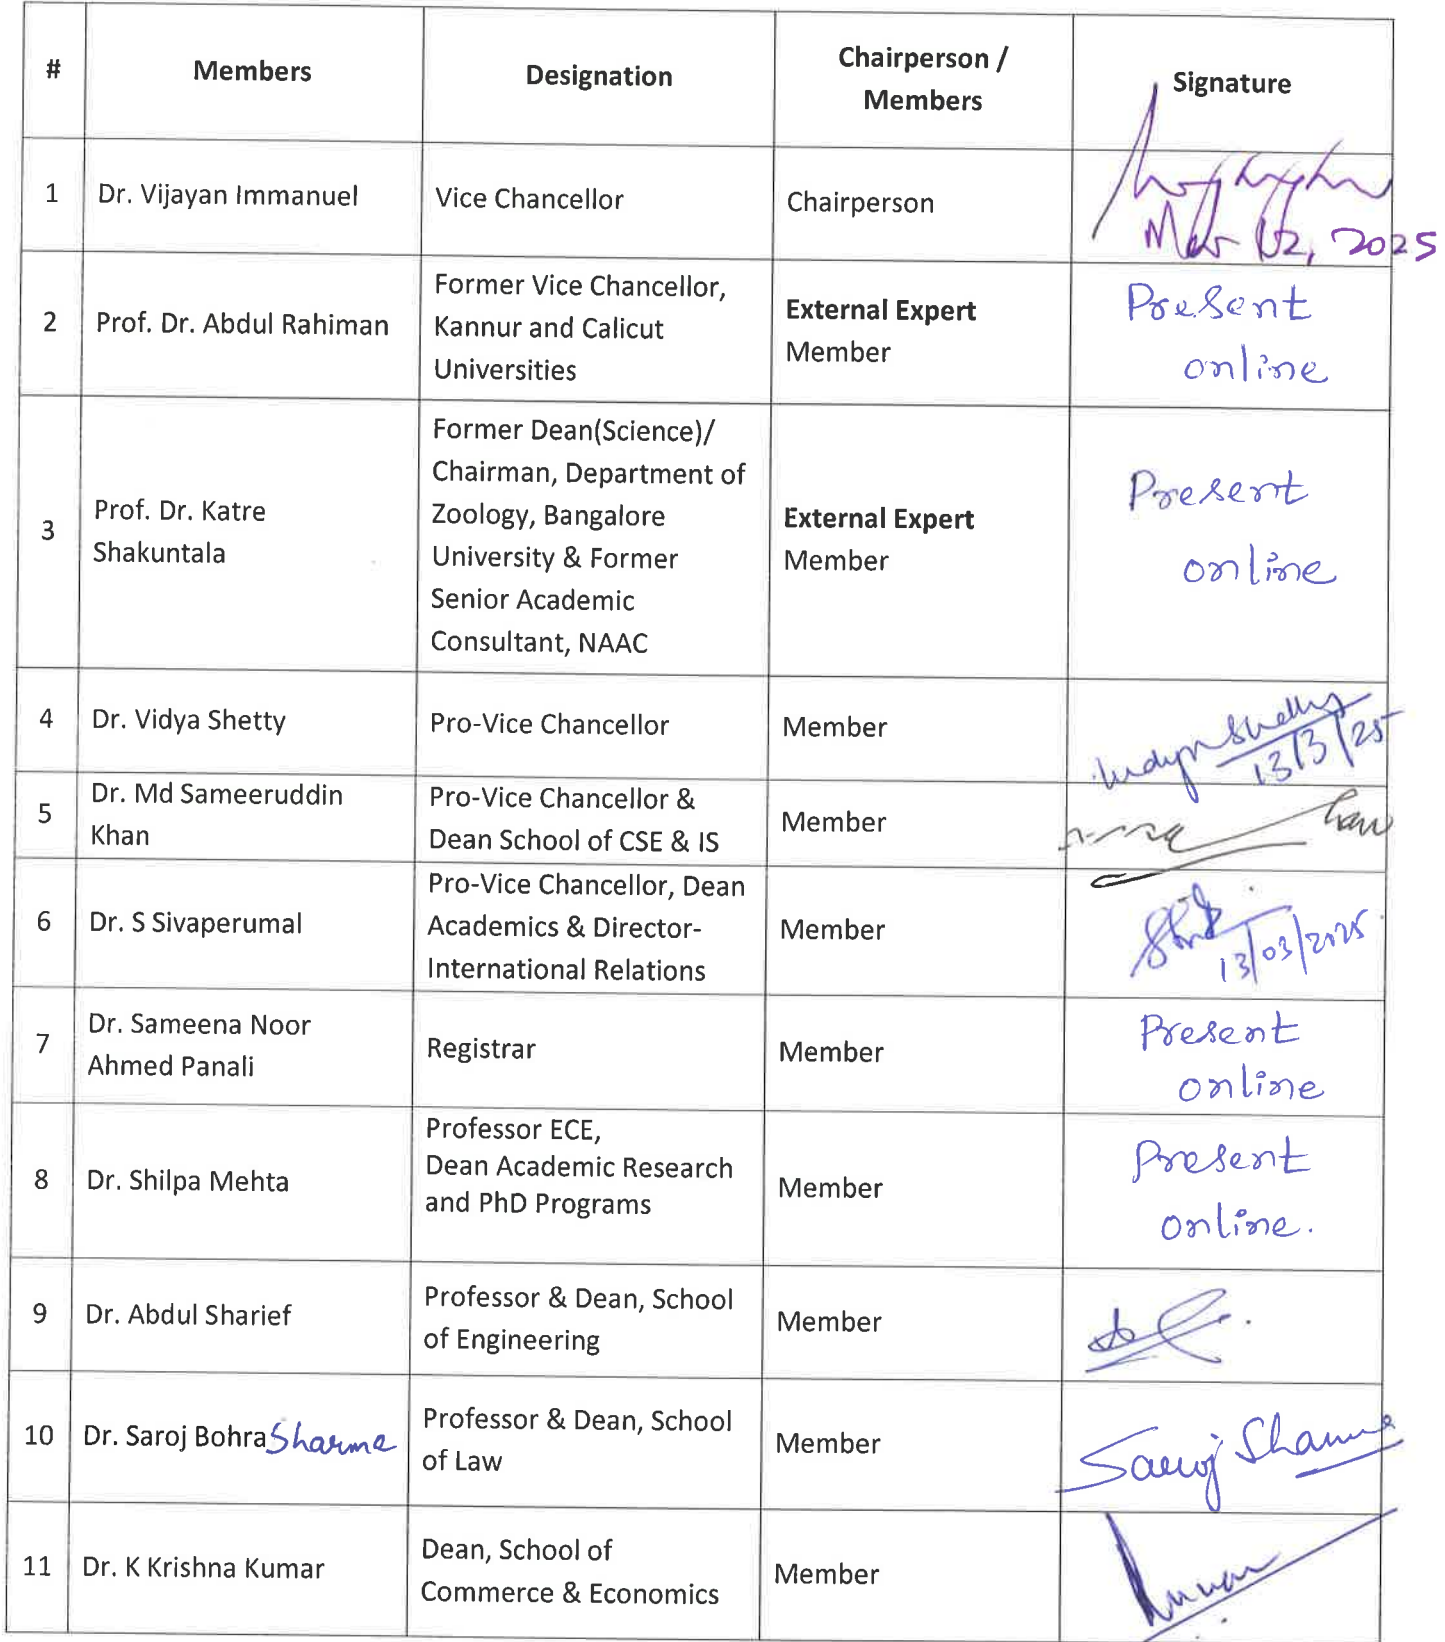 #
Members
Designation
Chairperson /
Members
Signature
1
Dr. Vijayan Immanuel
Vice Chancellor
Chairperson
Mar 12, 2025
2
Prof. Dr. Abdul Rahiman
Former Vice Chancellor,
Kannur and Calicut
Universities
External Expert
Member
Present
online
3
Prof. Dr. Katre
Shakuntala
Former Dean(Science)/
Chairman, Department of
Zoology, Bangalore
University & Former
Senior Academic
Consultant, NAAC
External Expert
Member
Present
online
4
Dr. Vidya Shetty
Pro-Vice Chancellor
Member
Vidya Shetty
13/3/25
5
Dr. Md Sameeruddin
Khan
Pro-Vice Chancellor &
Dean School of CSE & IS
Member
Khan
6
Dr. S Sivaperumal
Pro-Vice Chancellor, Dean
Academics & Director-
International Relations
Member
13/03/2025
7
Dr. Sameena Noor
Ahmed Panali
Registrar
Member
Present
online
8
Dr. Shilpa Mehta
Professor ECE,
Dean Academic Research
and PhD Programs
Member
Present
online.
9
Dr. Abdul Sharief
Professor & Dean, School
of Engineering
Member
10
Dr. Saroj Bohra Sharma
Professor & Dean, School
of Law
Member
Saroj Sharma
11
Dr. K Krishna Kumar
Dean, School of
Commerce & Economics
Member